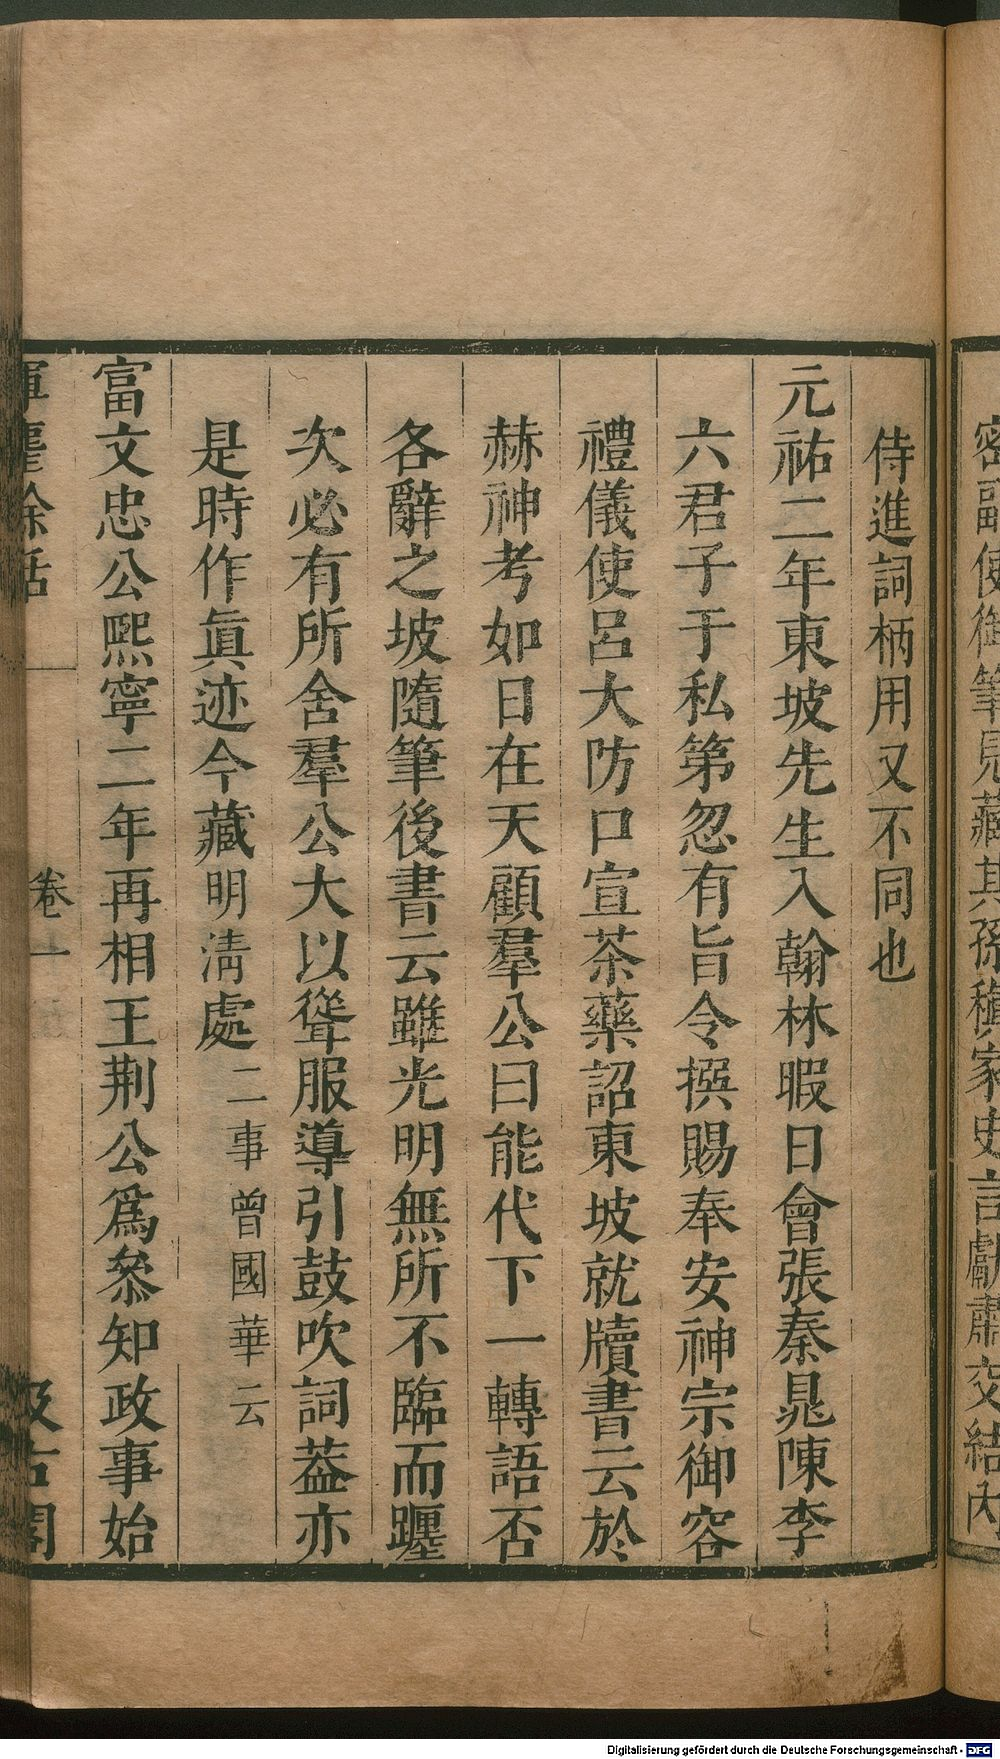 密副使御筆見藏其孫穕家史言獻肅交結內
侍進詞柄用又不同也
元祐二年東坡先生入翰林暇日會張秦晁陳李
六君子于私第忽有旨令撰賜奉安神宗御容
禮儀使呂大防口宣茶藥詔東坡就牘書云於
赫神考如日在天顧羣公曰能代下一轉語否
各辭之坡隨筆後書云雖光明無所不臨而躔
次必有所舍羣公大以聳服導引鼓吹詞葢亦
是時作眞迹今藏明淸處二事曾國華云
富文忠公熙寧二年再相王荆公爲叅知政事始
揮麈餘話
卷一
汲古閣
Digitalisierung gefördert durch die Deutsche Forschungsgemeinschaft - DFG